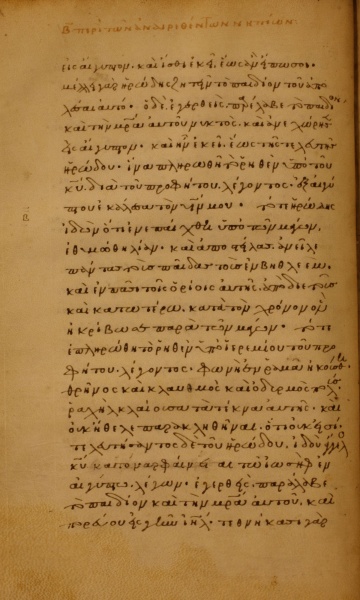 Β περὶ τῶν ἀναιρεθέντων νηπίων
εἰς αἴγυπτον. καὶ ἴσθι ἐκεῖ, ἕως ἂν εἴπω σοι.
μέλλει γὰρ ἡρώδης ζητεῖν τὸ παιδίον τοῦ ἀπο
λέσαι αὐτό. ὁ δὲ ἐγερθεὶς παρέλαβε τὸ παιδίον
καὶ τὴν μρα αὐτοῦ νυκτός. καὶ ἀνεχώρησεν
εἰς αἴγυπτον. καὶ ἦν ἐκεῖ ἕως τῆς τελευτῆς
ἡρώδου. ἵνα πληρωθῇ τὸ ῥηθὲν ὑπὸ τοῦ
κυ διὰ τοῦ προφήτου λέγοντος. ἐξ αἰγύ
πτου ἐκάλεσα τὸν υν μου. τότε ἡρώδης
Β
ἰδὼν ὅτι ἐνεπαίχθη ὑπὸ τῶν μάγων,
ἐθυμώθη λίαν. καὶ ἀποστείλας ἀνεῖλε
πάντας τοὺς παῖδας τοὺς ἐν βηθλεὲμ,
καὶ ἐν πᾶσι τοῖς ὁρίοις αὐτῆς. ἀπὸ διετοῦς
καὶ κατωτέρω. κατὰ τὸν χρόνον ὃν
ἠκρίβωσε παρὰ τῶν μάγων. τότε
ἐπληρώθη τὸ ῥηθὲν ὑπὸ ἱερεμίου τοῦ προ
φήτου λέγοντος. φωνὴ ἐν ῥαμᾶ ἠκούσθη
θρῆνος καὶ κλαυθμὸς καὶ ὀδυρμὸς πολύς
ῥαχὴλ κλαίουσα τὰ τέκνα αὐτῆς. καὶ
οὐκ ἤθελε παρακληθῆναι. ὅτι οὐκ εἰσί.
τελευτήσαντος δὲ τοῦ ἡρώδου, ἰδοὺ ἄγγελος
κυ κατ' ὄναρ φαίνεται τῷ ἰωσὴφ ἐν
αἰγύπτω λέγων. ἐγερθεὶς παράλαβε
τὸ παιδίον καὶ τὴν μρα αὐτοῦ, καὶ
πορεύου εἰς γῆν ιηλ. τεθνήκασι γὰρ